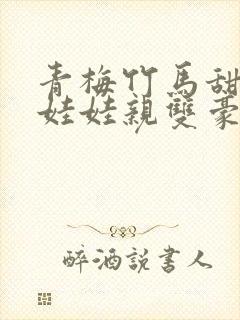 青梅竹馬甜
娃娃親雙豪
醉酒說書人